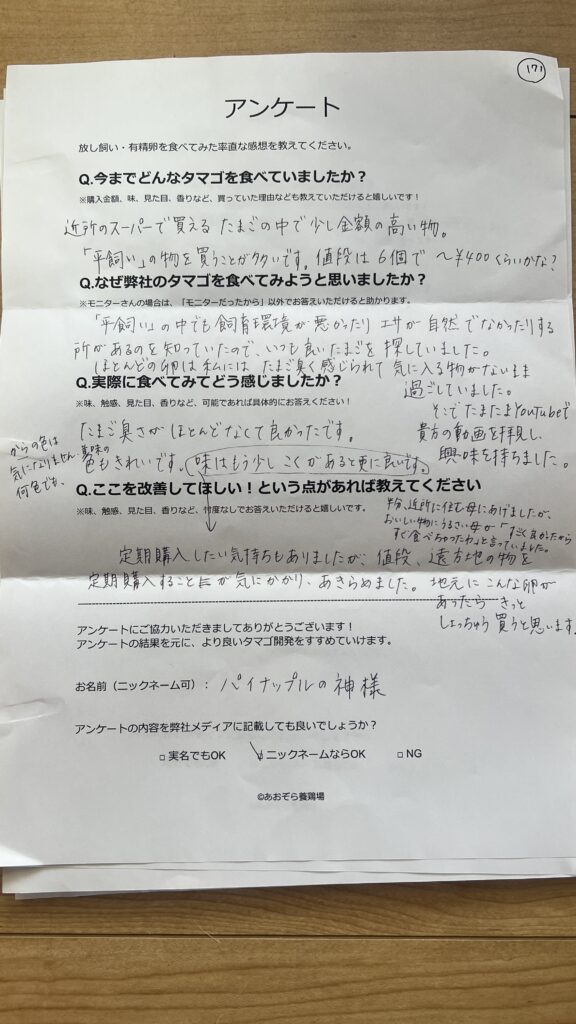 171
アンケート
放し飼い・有精卵を食べてみた率直な感想を教えてください。
Q.今までどんなタマゴを食べていましたか？
※購入金額、味、見た目、香りなど、買っていた理由なども教えていただけると嬉しいです！
近所のスーパーで買える たまごの中で少し金額の高い物。
「平飼い」の物を買うことが多いです。値段は6個で 〜¥400くらいかな？
Q.なぜ弊社のタマゴを食べてみようと思いましたか？
※モニターさんの場合は、「モニターだったから」以外でお答えいただけると助かります。
「平飼い」の中でも飼育環境が悪かったり エサが自然でなかったりする
所があるのを知っていたので、いつも良いたまごを探していました。
ほとんどの卵は私には たまご臭く感じられて 気に入る物がないまま
過ごしていました。
そこでたまたまYouTubeで
貴方の動画を拝見し、
興味を持ちました。
Q.実際に食べてみてどう感じましたか？
※味、触感、見た目、香りなど、可能であれば具体的にお答えください！
たまご臭さがほとんどなくて良かったです。
黄味の
色もきれいです。味はもう少しこくがあると更に良いです。
からの色は
気になりません
何色でも、
Q.ここを改善してほしい！という点があれば教えてください
※味、触感、見た目、香りなど、忖度なしでお答えいただけると嬉しいです。
半分、近所に住む母にあげましたが、
おいしい物にうるさい母が「すごく良かったから
すぐ食べちゃったわ」と言っていました。
定期購入したい気持ちもありましたが、値段、遠方地の物を
定期購入すること が気にかかり、あきらめました。地元にこんな卵が
あったら きっと
しょっちゅう買うと思います。
アンケートにご協力いただきましてありがとうございます！
アンケートの結果を元に、より良いタマゴ開発をすすめていけます。
お名前（ニックネーム可）： パイナップルの神様
アンケートの内容を弊社メディアに記載しても良いでしょうか？
□ 実名でもOK □ ニックネームならOK □ NG
©あおぞら養鶏場